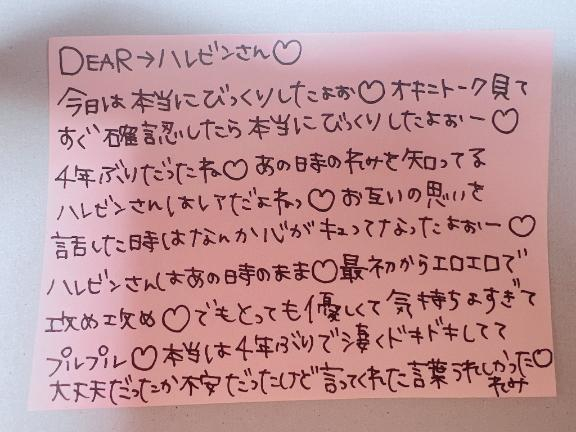 DEAR→ハレビンさん♡
今日は本当にびっくりしたよぉ♡オキニトーク見て
すぐ確認したら本当にびっくりしたよぉー♡
4年ぶりだったね♡あの日時のれみを知ってる
ハレビンさんはレアだよねっ♡お互いの思いを
話した時はなんか心がキュってなったよぉー♡
ハレビンさんはあの日時のまま♡最初からエロエロで
攻め攻め♡でもとっても優しくて気持ちよすぎて
プルプル♡本当は4年ぶりで凄くドキドキしてて
大丈夫だったか不安だったけど言ってくれた言葉うれしかった♡
れみ